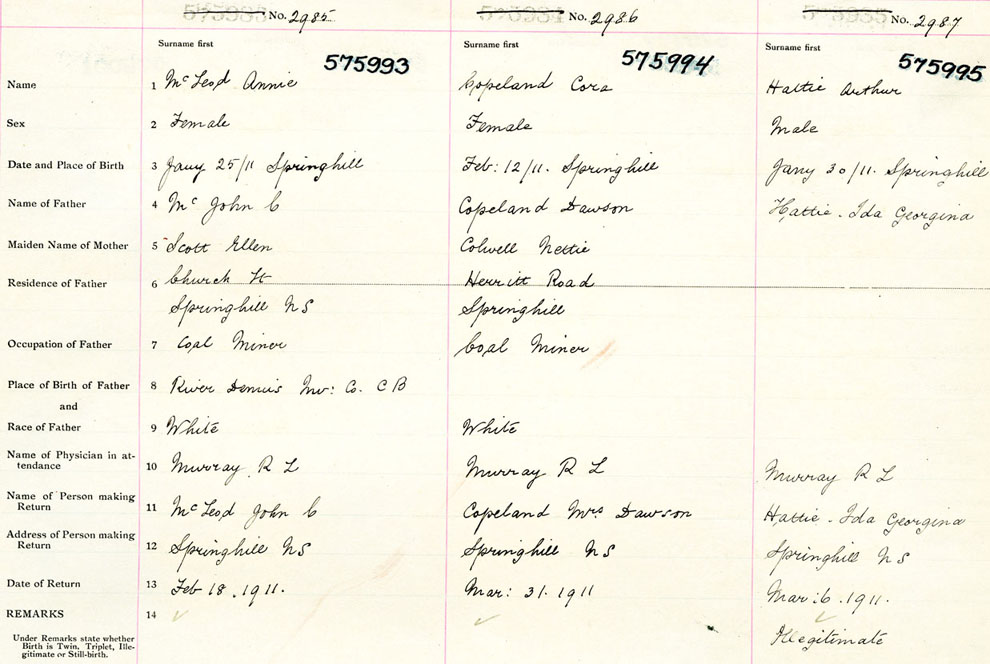 No. 2985 No. 2986 No. 2987
Surname first Surname first Surname first
575993 575994 575995
Name 1 McLeod Annie Copeland Cora Hattie Arthur
Sex 2 Female Female Male
Date and Place of Birth 3 Jany 25/11 Springhill Feb: 12/11. Springhill Jany 30/11. Springhill
Name of Father 4 Mc John C Copeland Dawson Hattie - Ida Georgina
Maiden Name of Mother 5 Scott Ellen Colwell Nettie
Residence of Father 6 Church St Herritt Road
Springhill NS Springhill
Occupation of Father 7 Coal Miner Coal Miner
Place of Birth of Father 8 River Dennis Inv: Co. C B
and
Race of Father 9 White White
Name of Physician in at-
tendance 10 Murray R L Murray R L Murray R L
Name of Person making
Return 11 McLeod John C Copeland Mrs Dawson Hattie - Ida Georgina
Address of Person making
Return 12 Springhill NS Springhill NS Springhill N S
Date of Return 13 Feb 18. 1911. Mar: 31. 1911 Mar: 6. 1911.
REMARKS 14
Under Remarks state whether Illegitimate
Birth is Twin, Triplet, Ille-
gitimate or Still-birth.